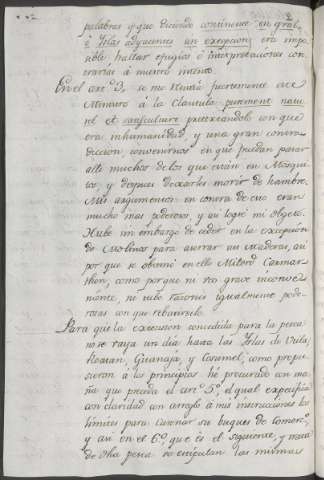 palabras y que diciendo continente en gral.
é Yslas adyacentes sin excepcion, era impo-
sible hallar efugios ó interpretaciones con-
trarias á nuestro intento.
En el artº. 3, se me venia fuertemente este
Ministro á la Clausula purement natu-
rel et sans culture pretextandolo con que
era inhumanidad, y una gran contra-
diccion, convenirnos en que puedan pasar
allí muchos de los que están en Mosqui-
tos, y despues dexarlos morir de hambre.
Mis argumentos en contra de eso eran
mucho mas poderosos, y así logré mi objeto.
Hube sin embargo de ceder en la excepción
de Molinos para aserrar sus Maderas, así
por que se obstinó en ello Milord Carmar-
then, como porque ni veo grave inconve-
niente, ni tube razones igualmente pode-
rosas con que rebatirselo.
Para que la extension concedida para la pesca
no se vaya un dia hasta las Yslas de Utila,
Roatan, Guanaja, y Cozumel, como propu-
sieron á los principios hé procurado con ma-
ña que preceda el artº. 5º, el qual especifica
con claridad con arreglo á mis instrucciones los
limites para carenar sus buques de Comercº.
y así en el 6º, que és el siguiente, y trata
de dha pesca se estipulan las mismas